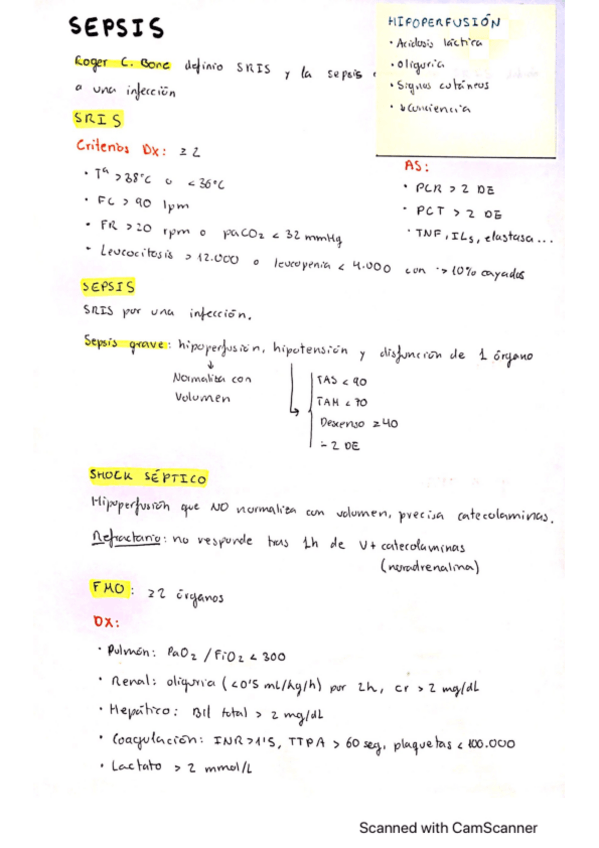 SEPSIS
Roger C. Bone definio SRIS y la sepsis
a una infección
HIPOPERFUSIÓN
· Acidosis láctica
· Oliguria
· Signos cutáneos
· ↓ Conciencia
SRIS
Criterios Dx: ≥ 2
· Tª > 38°C o < 36°C
· FC > 90 lpm
· FR > 20 rpm o paCO2 < 32 mmHg
· Leucocitosis > 12.000 o leucopenia < 4.000 con > 10% cayados
AS:
· PCR > 2 DE
· PCT > 2 DE
· TNF, ILs, elastasa...
SEPSIS
SRIS por una infección.
Sepsis grave: hipoperfusión, hipotensión y disfunción de 1 órgano
↓
Normaliza con
Volumen
TAS < 90
TAM < 70
Descenso ≥ 40
- 2 DE
SHOCK SÉPTICO
Hipoperfusión que NO normaliza con volumen, precisa catecolaminas.
Refractario: no responde tras 1h de V + catecolaminas
(noradrenalina)
FMO: ≥ 2 órganos
DX:
· Pulmón: PaO2 / FiO2 < 300
· Renal: oliguria (<0'5 ml/kg/h) por 2h, cr > 2 mg/dL
· Hepático: Bil total > 2 mg/dL
· Coagulación: INR>1'5, TTPA > 60 seg, plaquetas < 100.000
· Lactato > 2 mmol/L
Scanned with CamScanner